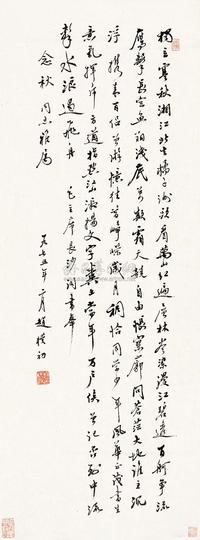 獨立寒秋湘江北去橘子洲頭看萬山紅遍層林盡染漫江碧透百舸爭流
鷹擊長空魚翔淺底萬類霜天競自由悵寥廓問蒼茫大地誰主沉
浮攜來百侶曾游憶往昔崢嶸歲月稠恰同學少年風華正茂書生
意氣揮斥方遒指點江山激揚文字糞土當年萬戶侯曾記否到中流
擊水浪遏飛舟 毛主席長沙詞書奉
念秋同志雅屬
一九七五年 月趙樸初